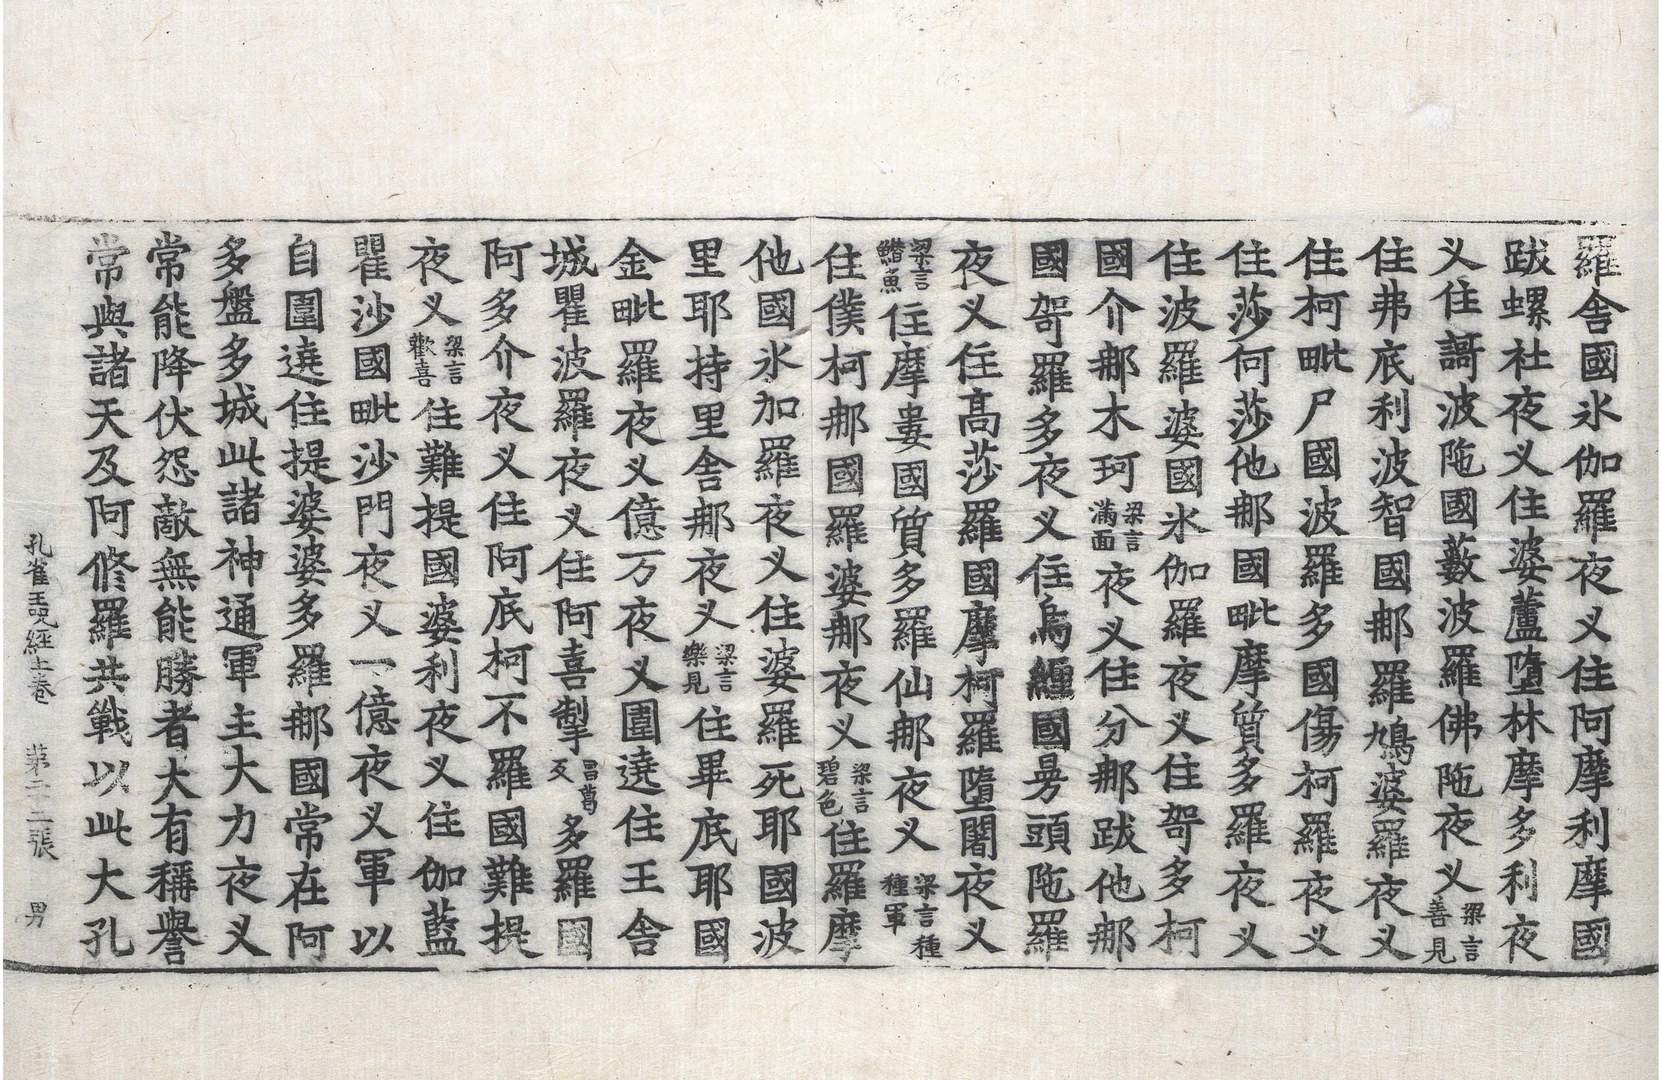 羅舍國氷伽羅夜义住阿摩利摩國
跋螺社夜义住婆蘆墮林摩多利夜
义住謌波陁國藪波羅佛陁夜义梁言善見
住弗底利波智國那羅鳩婆羅夜义
住柯毗尸國波羅多國傷柯羅夜义
住莎何莎他那國毗摩質多羅夜义
住波羅婆國氷伽羅夜义住哿多柯
國介那木珂梁言滿面夜义住分那跋他那
國哿羅多夜义住烏纏國曼頭陁羅
夜义住高莎羅國摩柯羅墮闍夜义
梁言鱛魚住摩婁國質多羅仙那夜义梁言種種軍
住僕柯那國羅婆那夜义梁言碧色住羅摩
他國氷加羅夜义住婆羅死耶國波
里耶持里舍那夜义梁言樂見住畢底耶國
金毗羅夜义億万夜义圍遶住王舍
城瞿波羅夜义住阿喜掣昌葛反多羅國
阿多介夜义住阿底柯不羅國難提
夜义梁言歡喜住難提國婆利夜义住伽藍
瞿沙國毗沙門夜义一億夜义軍以
自圍遶住提婆婆多羅那國常在阿
多盤多城此諸神通軍主大力夜义
常能降伏怨敵無能勝者大有稱譽
常與諸天及阿修羅共戰以此大孔
孔雀王呪經上卷 苐二十二張 男